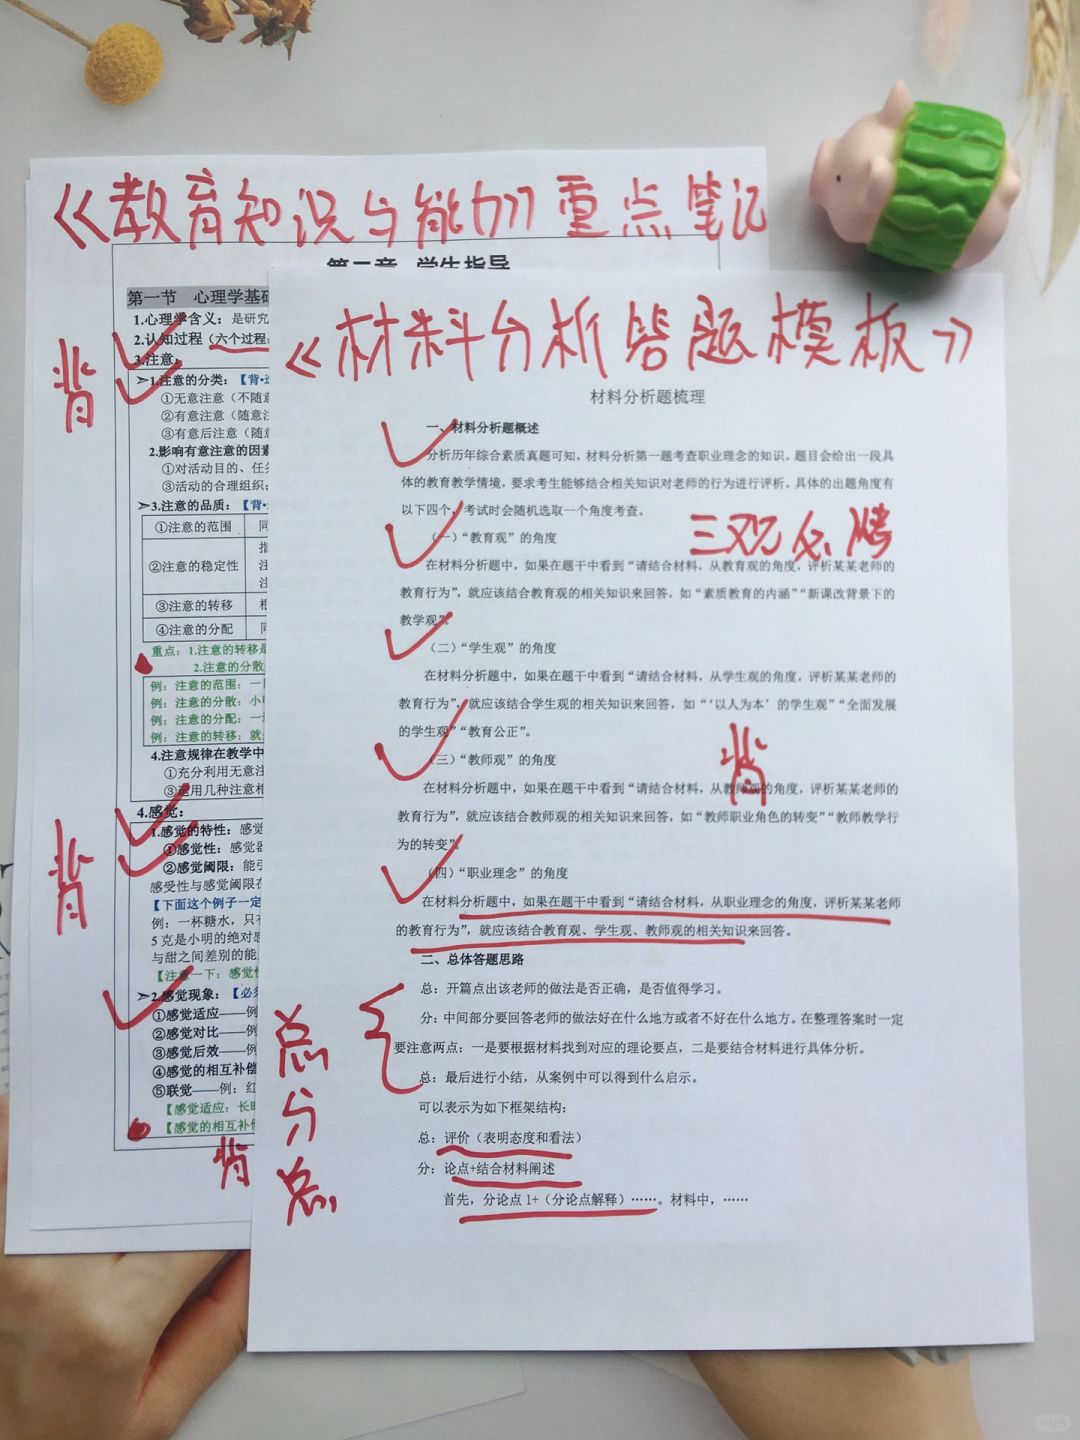 《教育知识与能力》重点笔记
第二章 学生指导
第一节 心理学基础
1.心理学含义：是研究
2.认知过程（六个过程：
3.注意：
➢1.注意的分类：【背·选
①无意注意（不随意
②有意注意（随意注
③有意后注意（随意
2.影响有意注意的因素
①对活动目的、任务
③活动的合理组织；
➢3.注意的品质：【背·
①注意的范围 同
②注意的稳定性
指
注
注
③注意的转移 根
④注意的分配 同
重点：1.注意的转移是
2.注意的分散
例：注意的范围：一目
例：注意的分散：小明
例：注意的分配：一边
例：注意的转移：就
4.注意规律在教学中
①充分利用无意注
③运用几种注意相
4.感觉：
1.感觉的特性：感觉
①感觉性：感觉器
②感觉阈限：能引
感受性与感觉阈限在
【下面这个例子一定
例：一杯糖水，只有
5克是小明的绝对感
与甜之间差别的能
【注意一下：感觉性
➢2.感觉现象：【必须
①感觉适应——例
②感觉对比——例
③感觉后效——例
④感觉的相互补偿
⑤联觉——例：红
【感觉适应：长时
【感觉的相互补偿
背
背
背
《材料分析答题模板》
材料分析题梳理
一、材料分析题概述
分析历年综合素质真题可知，材料分析第一题考查职业理念的知识。题目会给出一段具
体的教育教学情境，要求考生能够结合相关知识对老师的行为进行评析。具体的出题角度有
以下四个，考试时会随机选取一个角度考查。
三观必背
（一）“教育观”的角度
在材料分析题中，如果在题干中看到“请结合材料，从教育观的角度，评析某某老师的
教育行为”，就应该结合教育观的相关知识来回答，如“素质教育的内涵”“新课改背景下的
教学观”。
（二）“学生观”的角度
在材料分析题中，如果在题干中看到“请结合材料，从学生观的角度，评析某某老师的
教育行为”，就应该结合学生观的相关知识来回答，如“‘以人为本’的学生观”“全面发展
的学生观”“教育公正”。
背
（三）“教师观”的角度
在材料分析题中，如果在题干中看到“请结合材料，从教师观的角度，评析某某老师的
教育行为”，就应该结合教师观的相关知识来回答，如“教师职业角色的转变”“教师教学行
为的转变”。
（四）“职业理念”的角度
在材料分析题中，如果在题干中看到“请结合材料，从职业理念的角度，评析某某老师
的教育行为”，就应该结合教育观、学生观、教师观的相关知识来回答。
二、总体答题思路
总：开篇点出该老师的做法是否正确，是否值得学习。
分：中间部分要回答老师的做法好在什么地方或者不好在什么地方。在整理答案时一定
要注意两点：一是要根据材料找到对应的理论要点，二是要结合材料进行具体分析。
总：最后进行小结，从案例中可以得到什么启示。
总分总
可以表示为如下框架结构：
总：评价（表明态度和看法）
分：论点+结合材料阐述
首先，分论点1+（分论点解释）……。材料中，……
小红书